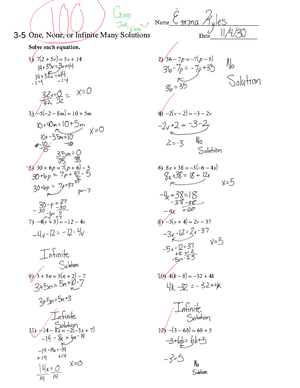 100
Good
Job,
Emma
Name Emma Kyles
3-5 One, None, or Infinite Many Solutions
Date 11/4/30
Solve each equation.
1) 7(2 + 5v) = 3v + 14
14+35v=3v+14
32v=0
x=0
2) 36 − 7p = −7(p − 5)
36-7p=-7p+35
36=35
No
Solution
3) −5(−2 − 8m) = 10 + 5m
10+40m=10+5m
x=0
35m=0
4) −2(v − 2) = −3 − 2v
-2v+2=-3-2v
2=-3
No
Solution
5) 30 + 6p = 7(p + 6) − 5
30+6p=7p+87
6) 8x + 38 = −3(−6 − 4x)
8x+38=18+12x
-4x+38=18
x=5
7) −4(v + 3) = −12 − 4v
-4v-12=-12-4v
Infinite
Solution
8) −3(v + 4) = 2v − 37
-3v-12=2v-37
-5v-12=-37
v=5
9) 3 + 5n = 5(n + 2) − 7
3+5n=5n+10-7
3+5n=5n+3
Infinite
Solution
10) 4(k − 8) = −32 + 4k
4k-32=-32+4k
Infinite
Solution
11) −14 − 8x = −2(−3x + 7)
-14-8x=6x-14
14x=0
x=0
12) −(3 − 6b) = 6b + 5
-3+6b=6b+5
-3=5
No
Solution